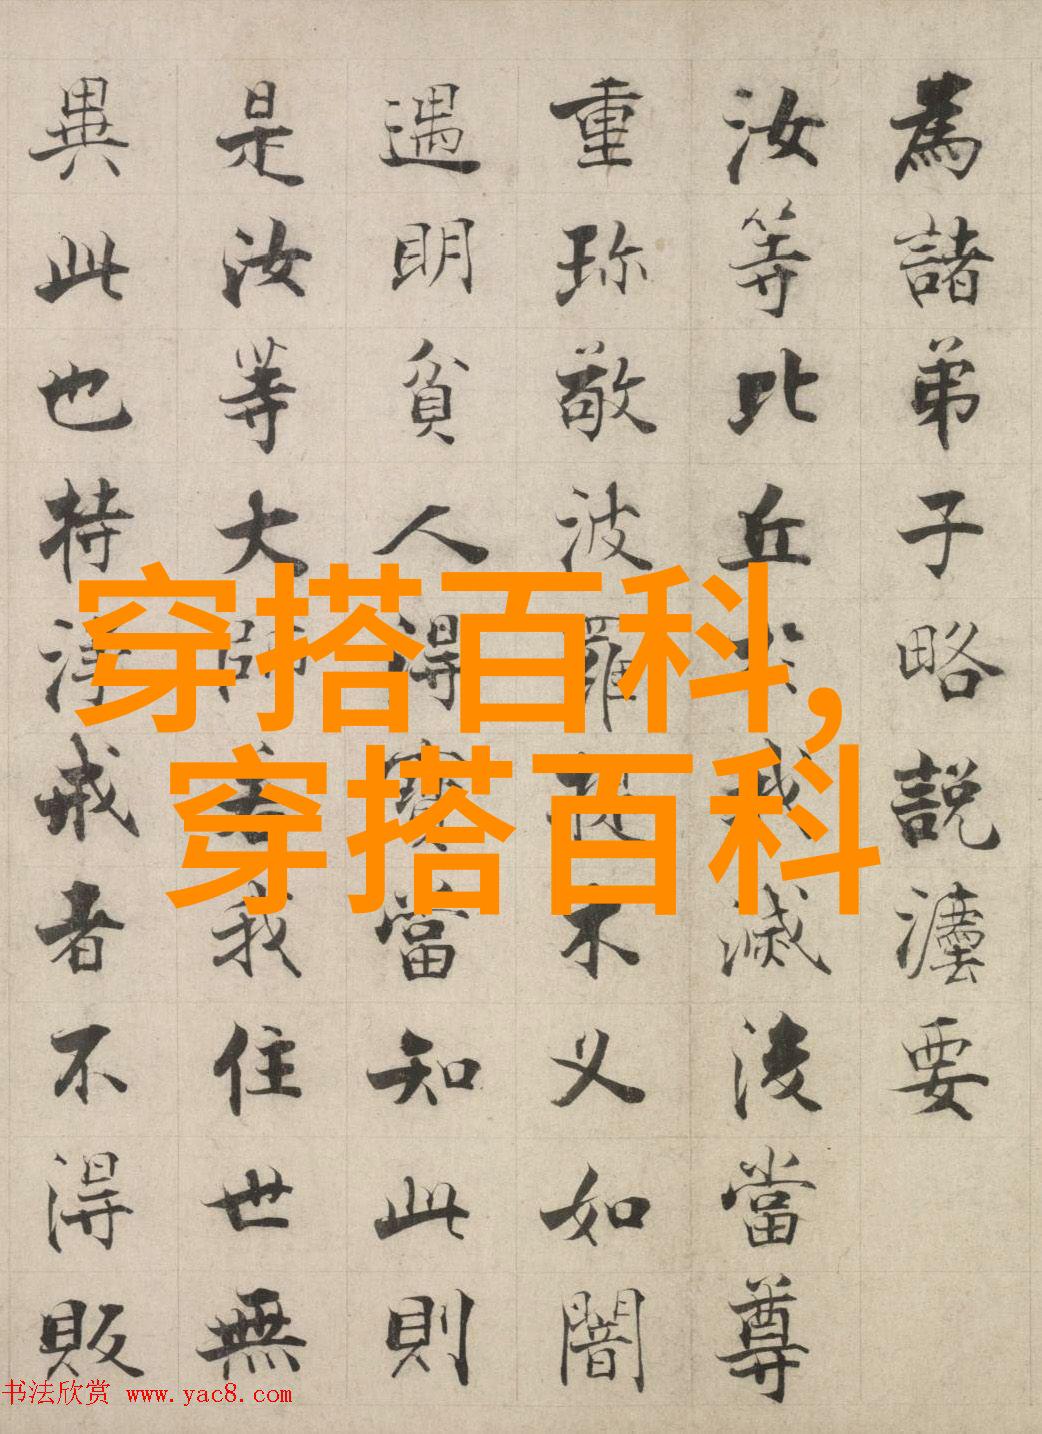 為諸弟子略說灋要
汝等比丘於我滅後當尊
重珎敬波羅提木叉如闇
遇明貧人得寶當知此則
是汝等大師若我住世無
異此也持淨戒者不得販
穿搭百科,
穿搭百科
书法欣赏 www.yac8.com